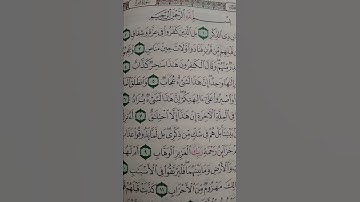 بِسْمِ ٱللَّهِ ٱلرَّحْمَٰنِ ٱلرَّحِيمِ
ذِى ٱلذِّكْرِ ١ بَلِ ٱلَّذِينَ كَفَرُوا۟ فِى عِزَّةٍ وَشِقَاقٍ
مِن قَرْنٍ فَنَادَوا۟ وَّلَاتَ حِينَ مَنَاصٍ
مِّنْهُمْ وَقَالَ ٱلْكَٰفِرُونَ هَٰذَا سَٰحِرٌ كَذَّابٌ
إِلَٰهًا وَٰحِدًا إِنَّ هَٰذَا لَشَىْءٌ عُجَابٌ ٥ وَٱنطَلَقَ
وَٱصْبِرُوا۟ عَلَىٰٓ ءَالِهَتِكُمْ إِنَّ هَٰذَا لَشَىْءٌ يُرَادُ
فِى ٱلْمِلَّةِ ٱلْءَاخِرَةِ إِنْ هَٰذَآ إِلَّا ٱخْتِلَٰقٌ ٧
بَلْ هُمْ فِى شَكٍّ مِّن ذِكْرِى بَل لَّمَّا يَذُوقُوا۟ عَذَابِ
خَزَآئِنُ رَحْمَةِ رَبِّكَ ٱلْعَزِيزِ ٱلْوَهَّابِ ٩ أَمْ لَهُم
وَٱلْأَرْضِ وَمَا بَيْنَهُمَا فَلْيَرْتَقُوا۟ فِى ٱلْأَسْبَٰبِ
مَهْزُومٌ مِّنَ ٱلْأَحْزَابِ ١١ كَذَّبَتْ قَبْلَهُمْ